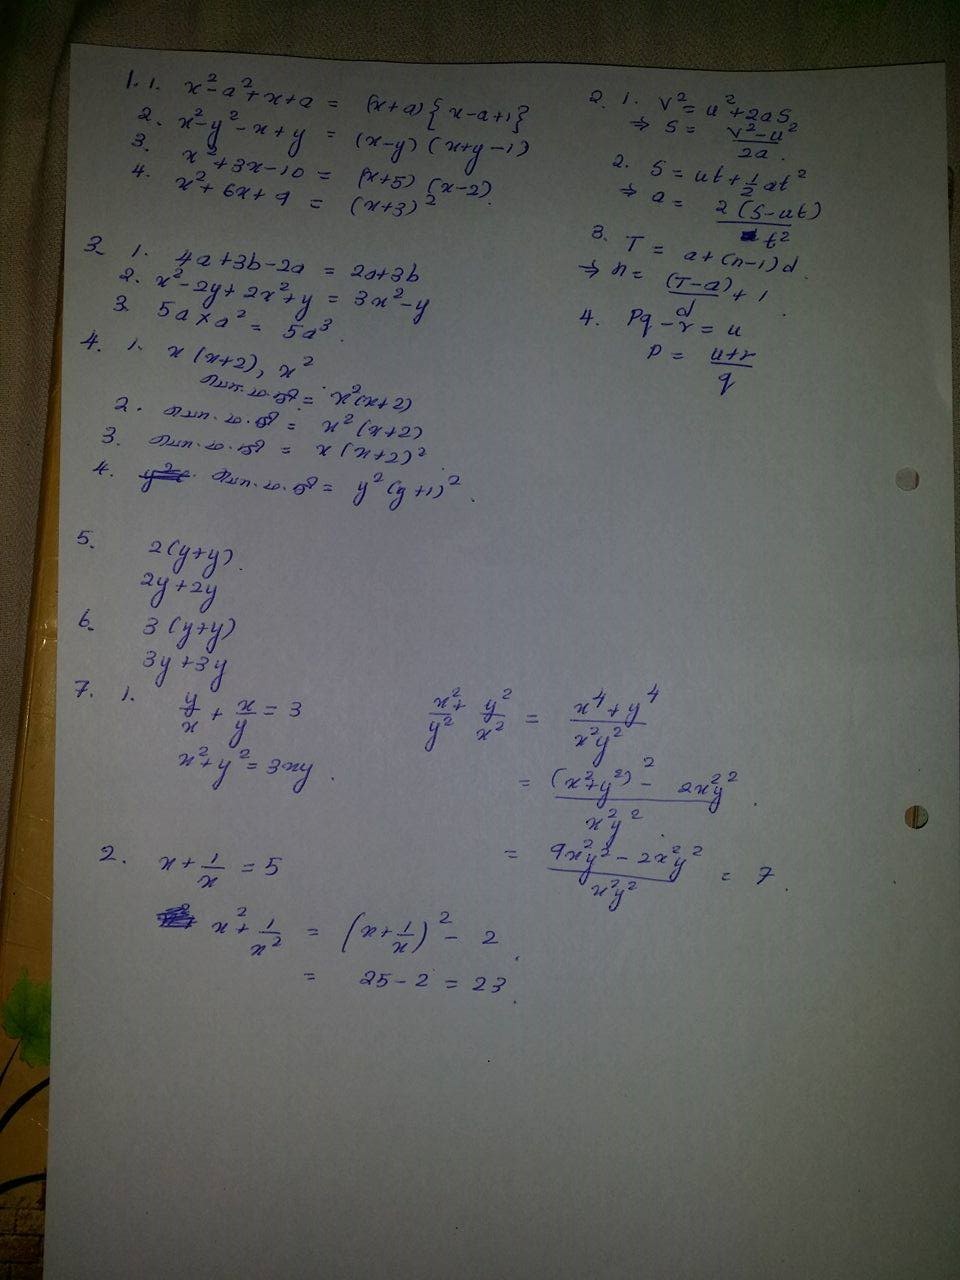 1. 1. x² - a² + x + a = (x+a) {x-a+1}
2. x² - y² - x + y = (x-y) (x+y-1)
3. x² + 3x - 10 = (x+5) (x-2)
4. x² + 6x + 9 = (x+3)²
2. 1. v² = u² + 2as
⇒ s = (v² - u²)/2a
2. S = ut + 1/2 at²
⇒ a = 2(S-ut)/t²
3. T = a + (n-1)d
⇒ n = (T-a)/d + 1
4. Pq - r = u
P = (u+r)/q
3. 1. 4a + 3b - 2a = 2a + 3b
2. x² - 2y + 2x² + y = 3x² - y
3. 5a × a² = 5a³
4. 1. x(x+2), x²
= x²(x+2)
2. = x²(x+2)
3. = x(x+2)²
4. = y²(y+1)²
5. 2(y+y)
2y+2y
6. 3(y+y)
3y+3y
7. 1. y/x + x/y = 3
x² + y² = 3xy
x²/y² + y²/x² = (x⁴ + y⁴)/x²y²
= ((x²+y²)² - 2x²y²)/x²y²
= (9x²y² - 2x²y²)/x²y² = 7
2. x + 1/x = 5
x² + 1/x² = (x + 1/x)² - 2
= 25 - 2 = 23